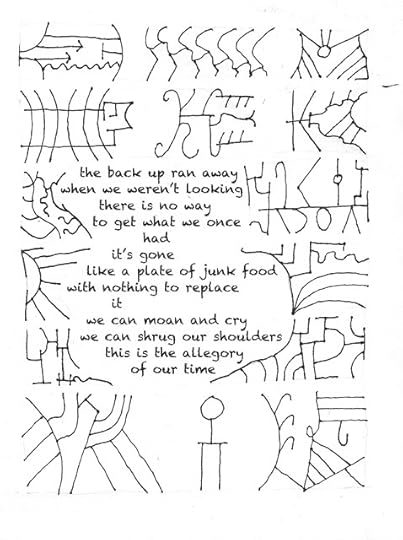 the back up ran away
when we weren't looking
there is no way
to get what we once
had
it's gone
like a plate of junk food
with nothing to replace
it
we can moan and cry
we can shrug our shoulders
this is the allegory
of our time